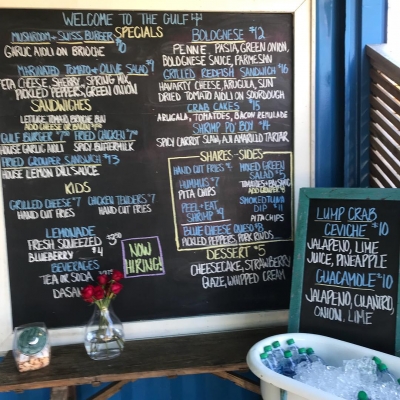 WELCOME TO THE GULF
SPECIALS
MUSHROOM + SWISS BURGER
GARLIC AIOLI ON BRIOCHE
MARINATED TOMATO + OLIVE SALAD $9
FETA CHEESE, SHERRY, SPRING MIX,
PICKLED PEPPERS, GREEN ONION
SANDWICHES
LETTUCE TOMATO BRIOCHE BUN
ADD CHEESE OR BACON
GULF BURGER FRIED CHICKEN
HOUSE GARLIC AIOLI SPICY BUTTERMILK
FRIED GROUPER SANDWICH $13
HOUSE LEMON DILL SAUCE
KIDS
GRILLED CHEESE $7 CHICKEN TENDERS $7
HAND CUT FRIES HAND CUT FRIES
LEMONADE
FRESH SQUEEZED
BLUEBERRY $4
BEVERAGES
TEA OR SODA
DASANI
NOW
HIRING!
BOLOGNESE $12
PENNE PASTA, GREEN ONION,
BOLOGNESE SAUCE, PARMESAN
GRILLED REDFISH SANDWICH $16
HAVARTY CHEESE, ARUGULA, SUN
DRIED TOMATO AIOLI ON SOURDOUGH
CRAB CAKES $15
ARUGALA, TOMATOES, BACON REMOULADE
SHRIMP PO' BOY $14
SPICY CARROT SLAW, AJI AMARILLO TARTAR
SHARES - SIDES
HAND CUT FRIES
HUMMUS $7
PITA CHIPS
PEEL + EAT
SHRIMP
MIXED GREEN
SALAD $5
SMOKED TUNA
DIP
PITA CHIPS
BLUE CHEESE QUESO $8
PICKLED PEPPERS, PORK RINDS
DESSERT $5
CHEESECAKE, STRAWBERRY
GLAZE, WHIPPED CREAM
LUMP CRAB
CEVICHE $10
JALAPENO, LIME
JUICE, PINEAPPLE
GUACAMOLE $10
JALAPENO, CILANTRO,
ONION, LIME